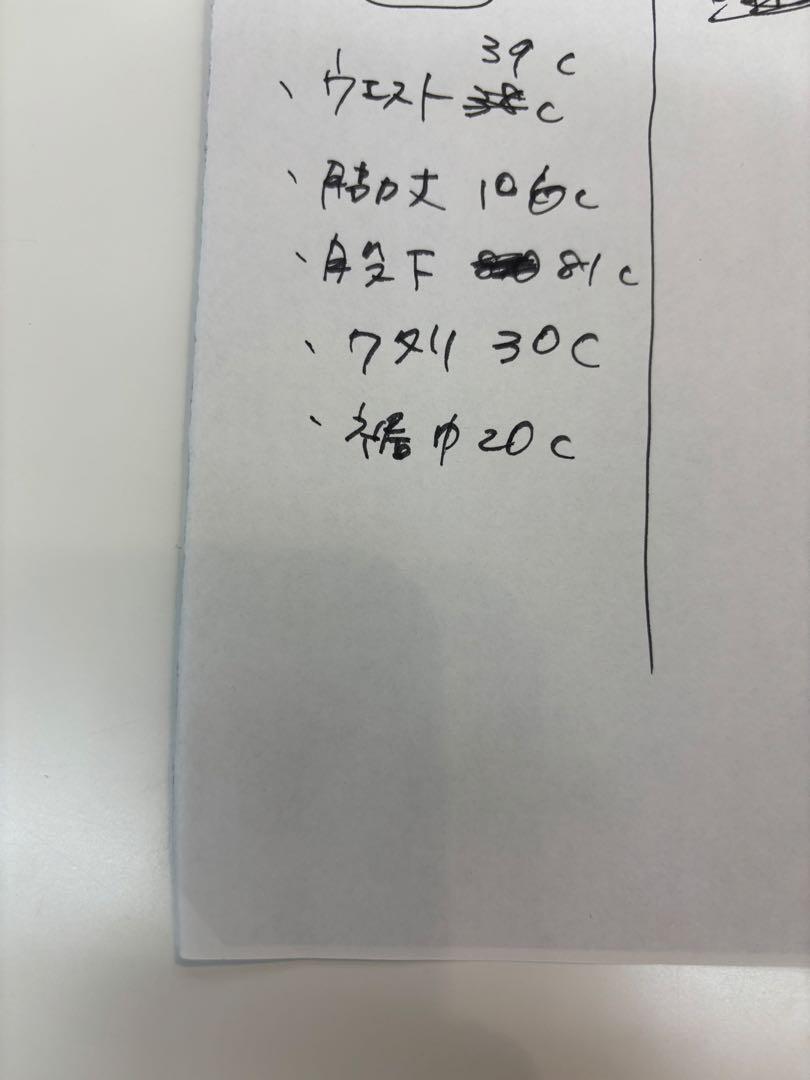 39c
、ウエスト c
、脇丈 106c
、股下 81c
、ワタリ 30c
、裾巾 20c